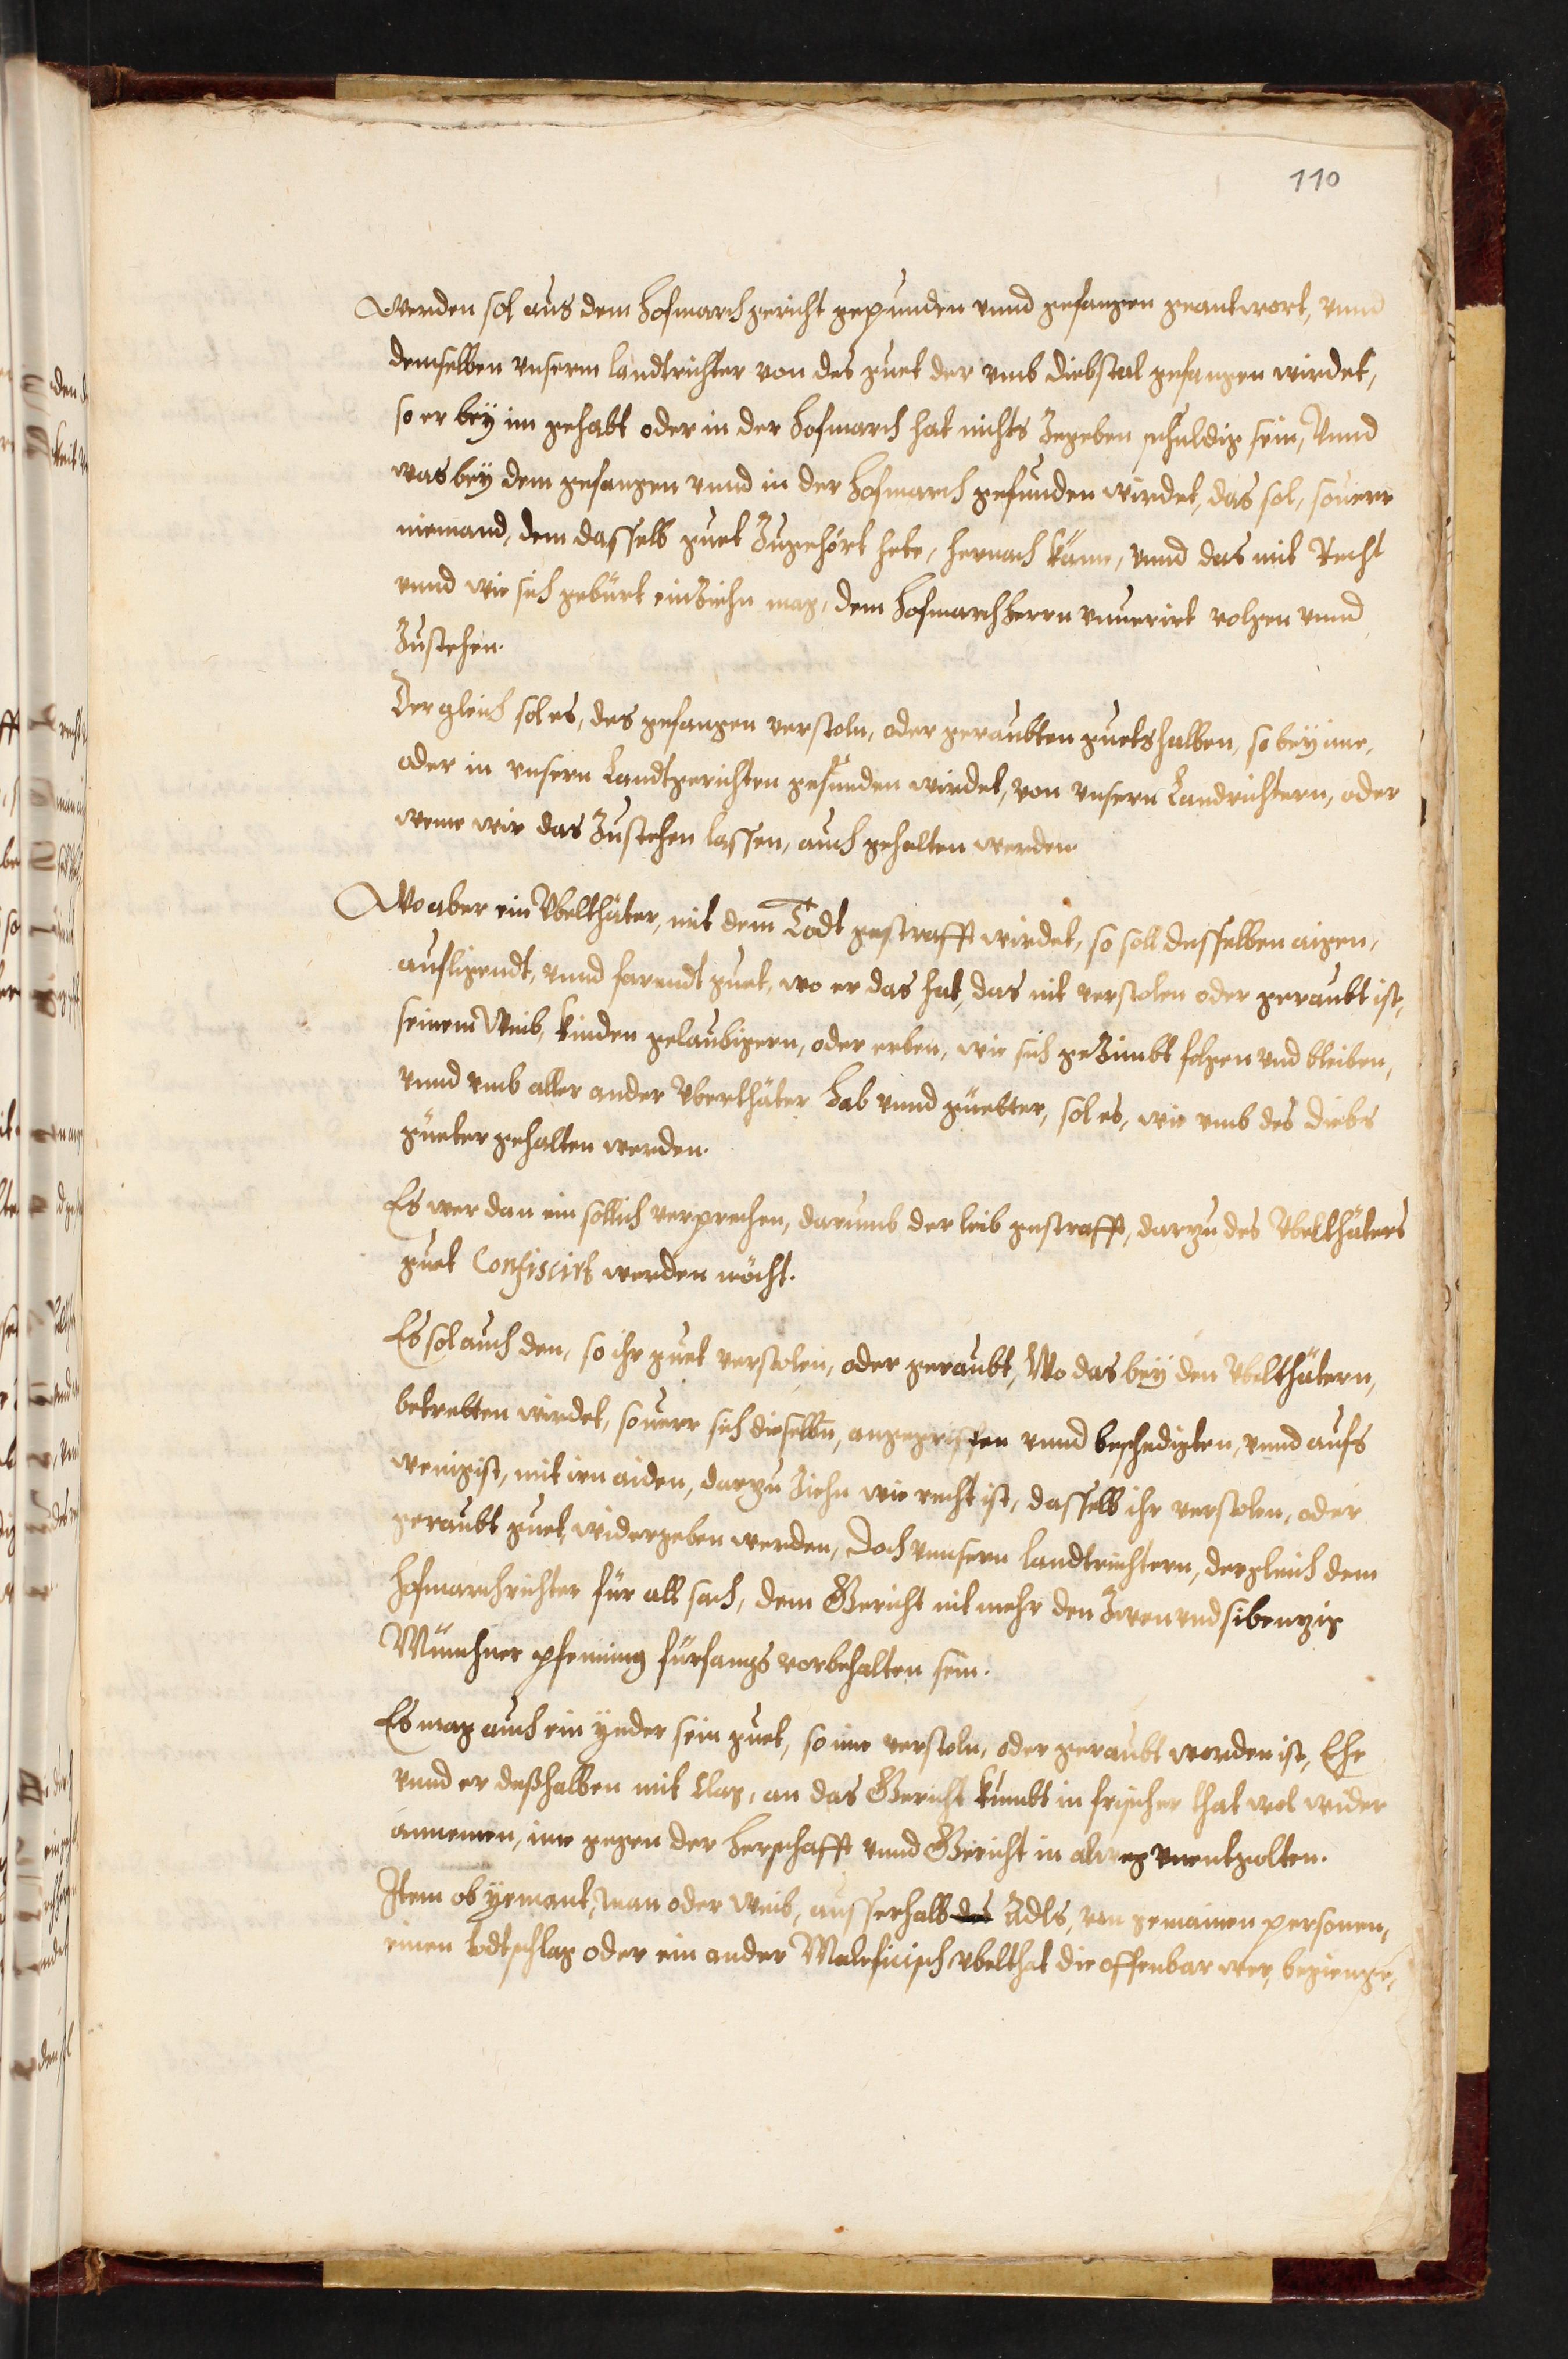 110
werden sol aus dem hofmarchgericht gepunden vnnd gefangen geantwort, vnnd
demselben vnserm landtrichter von des guet der vmb diebstal gefangen wirdet,
so er bey im gehabt oder in der hofmarch hat nichts Zegeben schuldig sein, Vnnd
was bey dem gefangen vnnd in der hofmarch gefunden wirdet, das sol, souerr
niemand, dem dasselb guet Zugehört hete, hernach käme, vnnd das mit Recht
vnnd wie sich gebürt einziehn mag, dem hofmarchherrn vnuerirt volgen vnnd
Zustehen.
Dergleich sol es, des gefangen verstoln, oder geraubten guetshalben, so bey ime,
oder in vnsern Landtgerichten gefunden wirdet, von vnsern Landrichtern, oder
weme wir das Zustehen lassen, auch gehalten werden.
Wo aber ein Vbelthäter, mit dem Todt gestrafft wirdet, so soll desselben aigen,
aufligendt, vnnd farendt guet, wo er das hat, das nit verstolen oder geraubt ist,
seinem Weib, kinden gelaubigern, oder erben, wie sich geZimbt folgen vnd bleiben,
vnnd vmb aller ander Vberthäter hab vnnd güetter, sol es, wie vmb des diebs
güeter gehalten werden.
Es wer dan ein sollich verprechen, darumb der leib gestrafft, daryzu des Vbelthäters
guet Confiscirt werden möcht.
Es sol auch den, so ihr guet verstolen, oder geraubt, Wo das bey den Vbelthätern,
betretten wirdet, souerr sich dieselbn, angegriffen vnnd beschedigten, vnnd aufs
wenigist, mit irn aiden, darzu Ziehn wie recht ist, dasselb ihr verstolen, oder
geraubt guet, widergeben werden, doch vnnsern landtrichtern, dergleich dem
hofmarchrichter für all sach, dem Gericht nit mehr den Zwenvndsibenzig
Münchner pfening fürfangs vorbehalten sein.
Es mag auch ein yeder sein guet, so ime verstoln, oder geraubt worden ist, Ehe
vnnd er deßhalben mit clag, an das Gericht kumbt in frischer that wol wider
annemen, ime gegen der herschafft vnnd Gericht in alweg vnentgolten.
Item ob yemant, man oder weib, ausserhalb des Adls, von gemainen personen,
einen todtschlag oder ein ander Maleficisch vbelthat die offenbar wer, begienge,